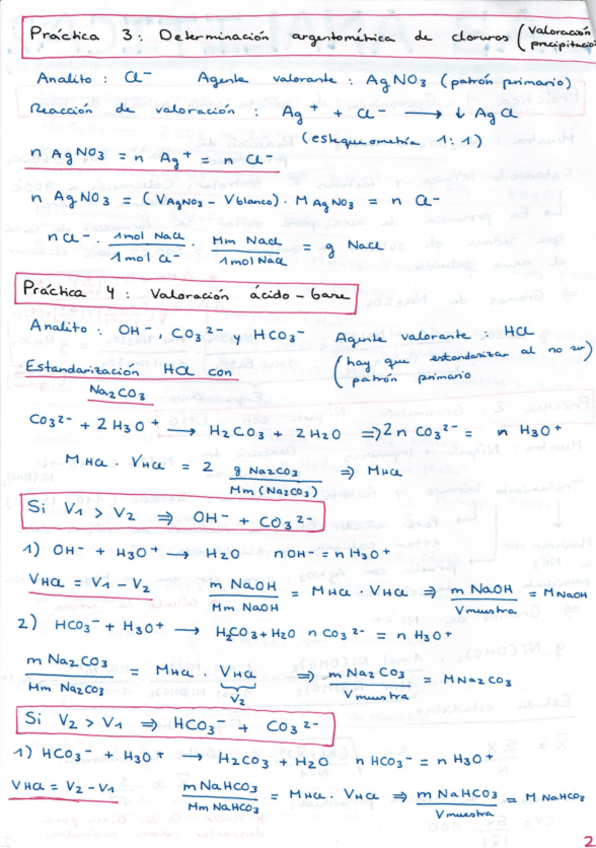 Práctica 3: Determinación argentométrica de cloruros (Valoración precipitació
Analito: Cl⁻ Agente valorante: AgNO3 (patrón primario)
Reacción de valoración: Ag⁺ + Cl⁻ → ↓ AgCl
(estequiometría 1:1)
n AgNO3 = n Ag⁺ = n Cl⁻
n AgNO3 = (VAgNO3 - Vblanco) · M AgNO3 = n Cl⁻
nCl⁻ · 1mol NaCl / 1mol Cl⁻ · Mm NaCl / 1mol NaCl = g NaCl
Práctica 4: Valoración ácido-base
Analito: OH⁻, CO3²⁻ y HCO3⁻ Agente valorante: HCl
(hay que estandarizar al no ser
patrón primario
Estandarización HCl con
Na2CO3
CO3²⁻ + 2H3O⁺ → H2CO3 + 2H2O ⇒ 2n CO3²⁻ = n H3O⁺
MHCl · VHCl = 2 g Na2CO3 / Mm(Na2CO3) ⇒ MHCl
Si V1 > V2 ⇒ OH⁻ + CO3²⁻
1) OH⁻ + H3O⁺ → H2O nOH⁻ = nH3O⁺
VHCl = V1 - V2 m NaOH / Mm NaOH = MHCl · VHCl ⇒ m NaOH / Vmuestra = MNaOH
2) HCO3⁻ + H3O⁺ → H2CO3 + H2O n CO3²⁻ = n H3O⁺
m Na2CO3 / Mm Na2CO3 = MHCl · VHCl ⇒ m Na2CO3 / Vmuestra = MNa2CO3
V2
Si V2 > V1 ⇒ HCO3⁻ + CO3²⁻
1) HCO3⁻ + H3O⁺ → H2CO3 + H2O n HCO3⁻ = n H3O⁺
VHCl = V2 - V1 m NaHCO3 / Mm NaHCO3 = MHCl · VHCl ⇒ m NaHCO3 / Vmuestra = M NaHCO3
2